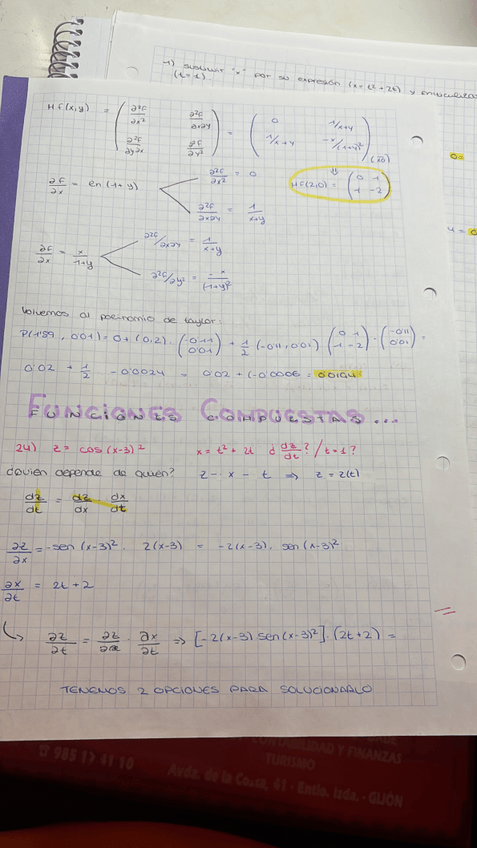 -1) sustituir "x" por su expresión (x = t² + 2t) y
(t=1)
Hf(x,y) = ( ∂²f/∂x² ∂²f/∂x∂y ; ∂²f/∂y∂x ∂²f/∂y² ) = ( 0 1/x+y ; 1/x+y -x/(1+y)² )
∂f/∂x = en (1+y)
∂²f/∂x² = 0
∂²f/∂x∂y = 1/x+y
Hf(2,0) = ( 0 1 ; 1 -2 )
∂f/∂x = x/1+y
∂²f/∂x∂y = 1/x+y
∂²f/∂y² = -x/(1+y)²
Volvemos al polinomio de taylor:
P(1'89, 0'01) = 0 + (0,2) · (-0'11 ; 0'01) + 1/2 (-0'11, 0'01) (0 1 ; 1 -2) · (-0'11 ; 0'01) =
0'02 + 1/2 -0'0024 = 0'02 + (-0'0006 =
FUNCIONES COMPUESTAS...
24) z = cos (x-3)² x = t² + 2t ¿ dz/dt ? / t=1?
¿Quien depende de quien? z - x - t ⇒ z = z(t)
dz/dt = dz/dx · dx/dt
∂z/∂x = -sen (x-3)² · 2(x-3) = -2(x-3) · sen (x-3)²
∂x/∂t = 2t + 2
∂z/∂t = ∂z/∂x · ∂x/∂t ⇒ [-2(x-3) sen (x-3)²] · (2t+2) =
TENEMOS 2 OPCIONES PARA SOLUCIONARLO
CONTABILIDAD Y FINANZAS
☎ 985 17 41 10 TURISMO
Avda. de la Costa, 41 - Entlo. Izda. - GIJÓN